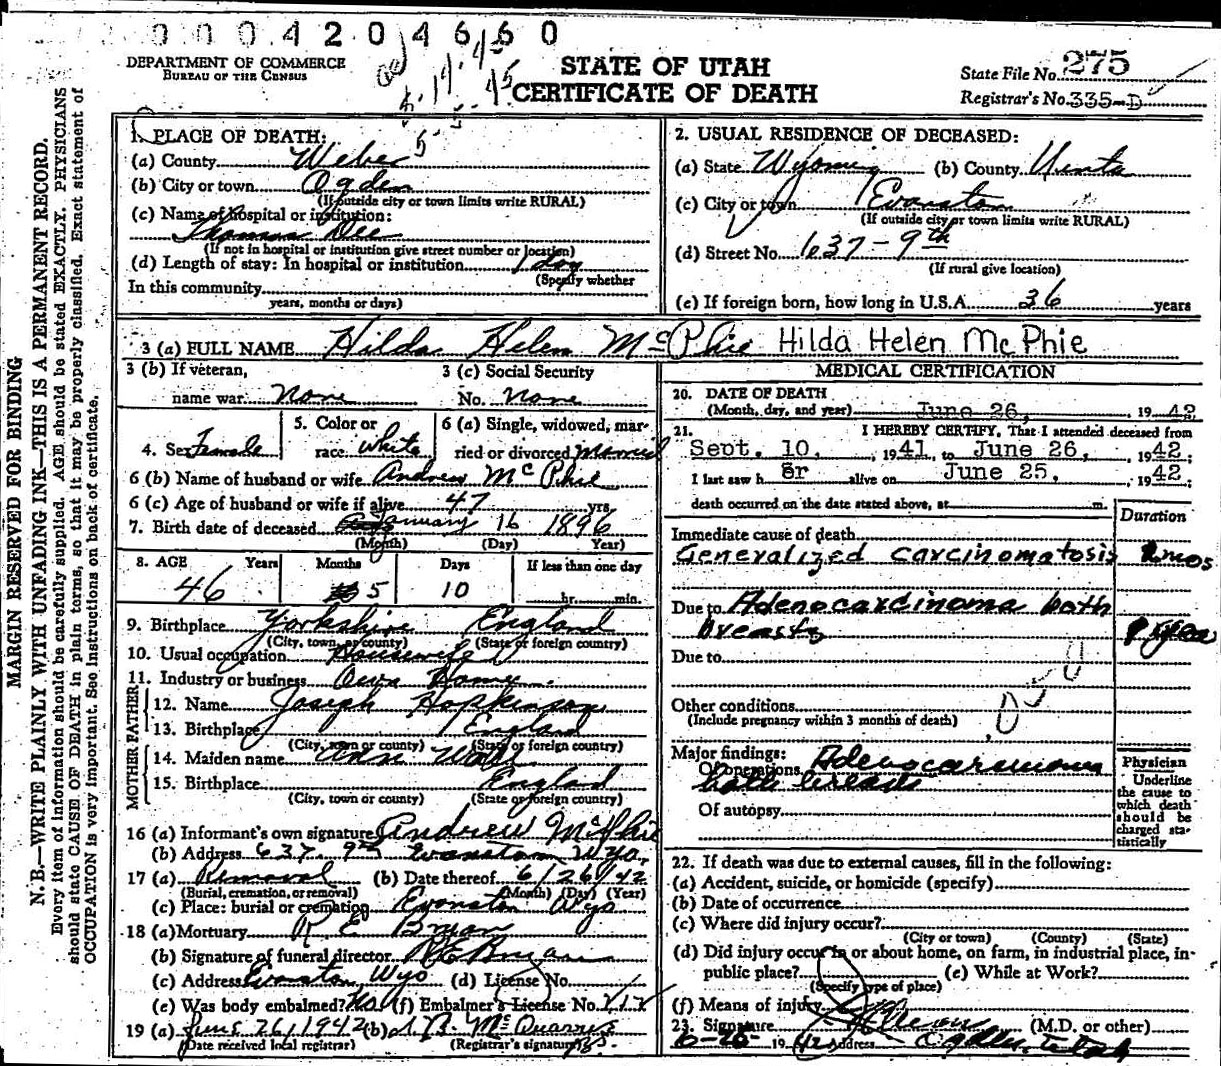 0 0 0 4 2 0 4 6 6 0
DEPARTMENT OF COMMERCE
BUREAU OF THE CENSUS
STATE OF UTAH
CERTIFICATE OF DEATH
State File No. 275
Registrar's No. 335-D
MARGIN RESERVED FOR BINDING
N. B.—WRITE PLAINLY WITH UNFADING INK—THIS IS A PERMANENT RECORD.
Every item of information should be carefully supplied. AGE should be stated EXACTLY. PHYSICIANS
should state CAUSE OF DEATH in plain terms, so that it may be properly classified. Exact statement of
OCCUPATION is very important. See instructions on back of certificate.
1. PLACE OF DEATH:
(a) County Weber
(b) City or town Ogden
(If outside city or town limits write RURAL)
(c) Name of hospital or institution:
Thomas Dee
(If not in hospital or institution give street number or location)
(d) Length of stay: In hospital or institution 1 day
(Specify whether
In this community
years, months or days)
2. USUAL RESIDENCE OF DECEASED:
(a) State Wyoming (b) County Uinta
(c) City or town Evanston
(If outside city or town limits write RURAL)
(d) Street No. 637-9th
(If rural give location)
(e) If foreign born, how long in U.S.A. 36 years
3 (a) FULL NAME Hilda Helen McPhie Hilda Helen McPhie
3 (b) If veteran,
name war. none
3 (c) Social Security
No. none
4. Sex Female
5. Color or
race white
6 (a) Single, widowed, mar-
ried or divorced Married
6 (b) Name of husband or wife Andrew McPhie
6 (c) Age of husband or wife if alive 47 yrs
7. Birth date of deceased January 16 1896
(Month) (Day) Year)
8. AGE Years Months Days If less than one day
46 5 10 hr. min.
9. Birthplace Yorkshire England
(City, town, or county) (State or foreign country)
10. Usual occupation Housewife
11. Industry or business Own Home
FATHER
12. Name Joseph Hopkinson
13. Birthplace England
(City, town or county) (State or foreign country)
MOTHER
14. Maiden name Ann
15. Birthplace England
(City, town or county) (State or foreign country)
16 (a) Informant's own signature Andrew McPhie
(b) Address 637-9th Evanston Wyo.
17 (a) Removal (b) Date thereof 6/26/42
(Burial, cremation, or removal) (Month) (Day) (Year)
(c) Place: burial or cremation Evanston Wyo
18 (a) Mortuary R E Bryan
(b) Signature of funeral director R E Bryan
(c) Address Evanston, Wyo (d) License No.
(e) Was body embalmed? No (f) Embalmer's License No. 717
19 (a) June 26, 1942 (b)
(Date received local registrar) (Registrar's signature)
MEDICAL CERTIFICATION
20. DATE OF DEATH
(Month, day, and year) June 26, 19 42
21. I HEREBY CERTIFY, That I attended deceased from
Sept. 10, 1941, to June 26, 1942;
I last saw h er alive on June 25, 1942;
death occurred on the date stated above, at m.
Duration
Immediate cause of death
Generalized carcinomatosis 2mos
Due to Adenocarcinoma both
breasts
Due to
Other conditions
(Include pregnancy within 3 months of death)
Major findings:
Of operations Adenocarcinoma
both breasts
Of autopsy
Physician
Underline
the cause to
which death
should be
charged sta-
tistically
22. If death was due to external causes, fill in the following:
(a) Accident, suicide, or homicide (specify)
(b) Date of occurrence
(c) Where did injury occur?
(City or town) (County) (State)
(d) Did injury occur in or about home, on farm, in industrial place, in-
public place? (e) While at Work?
(Specify type of place)
(f) Means of injury
23. Signature (M.D. or other)
6-26- 19 42 Address Ogden, Utah